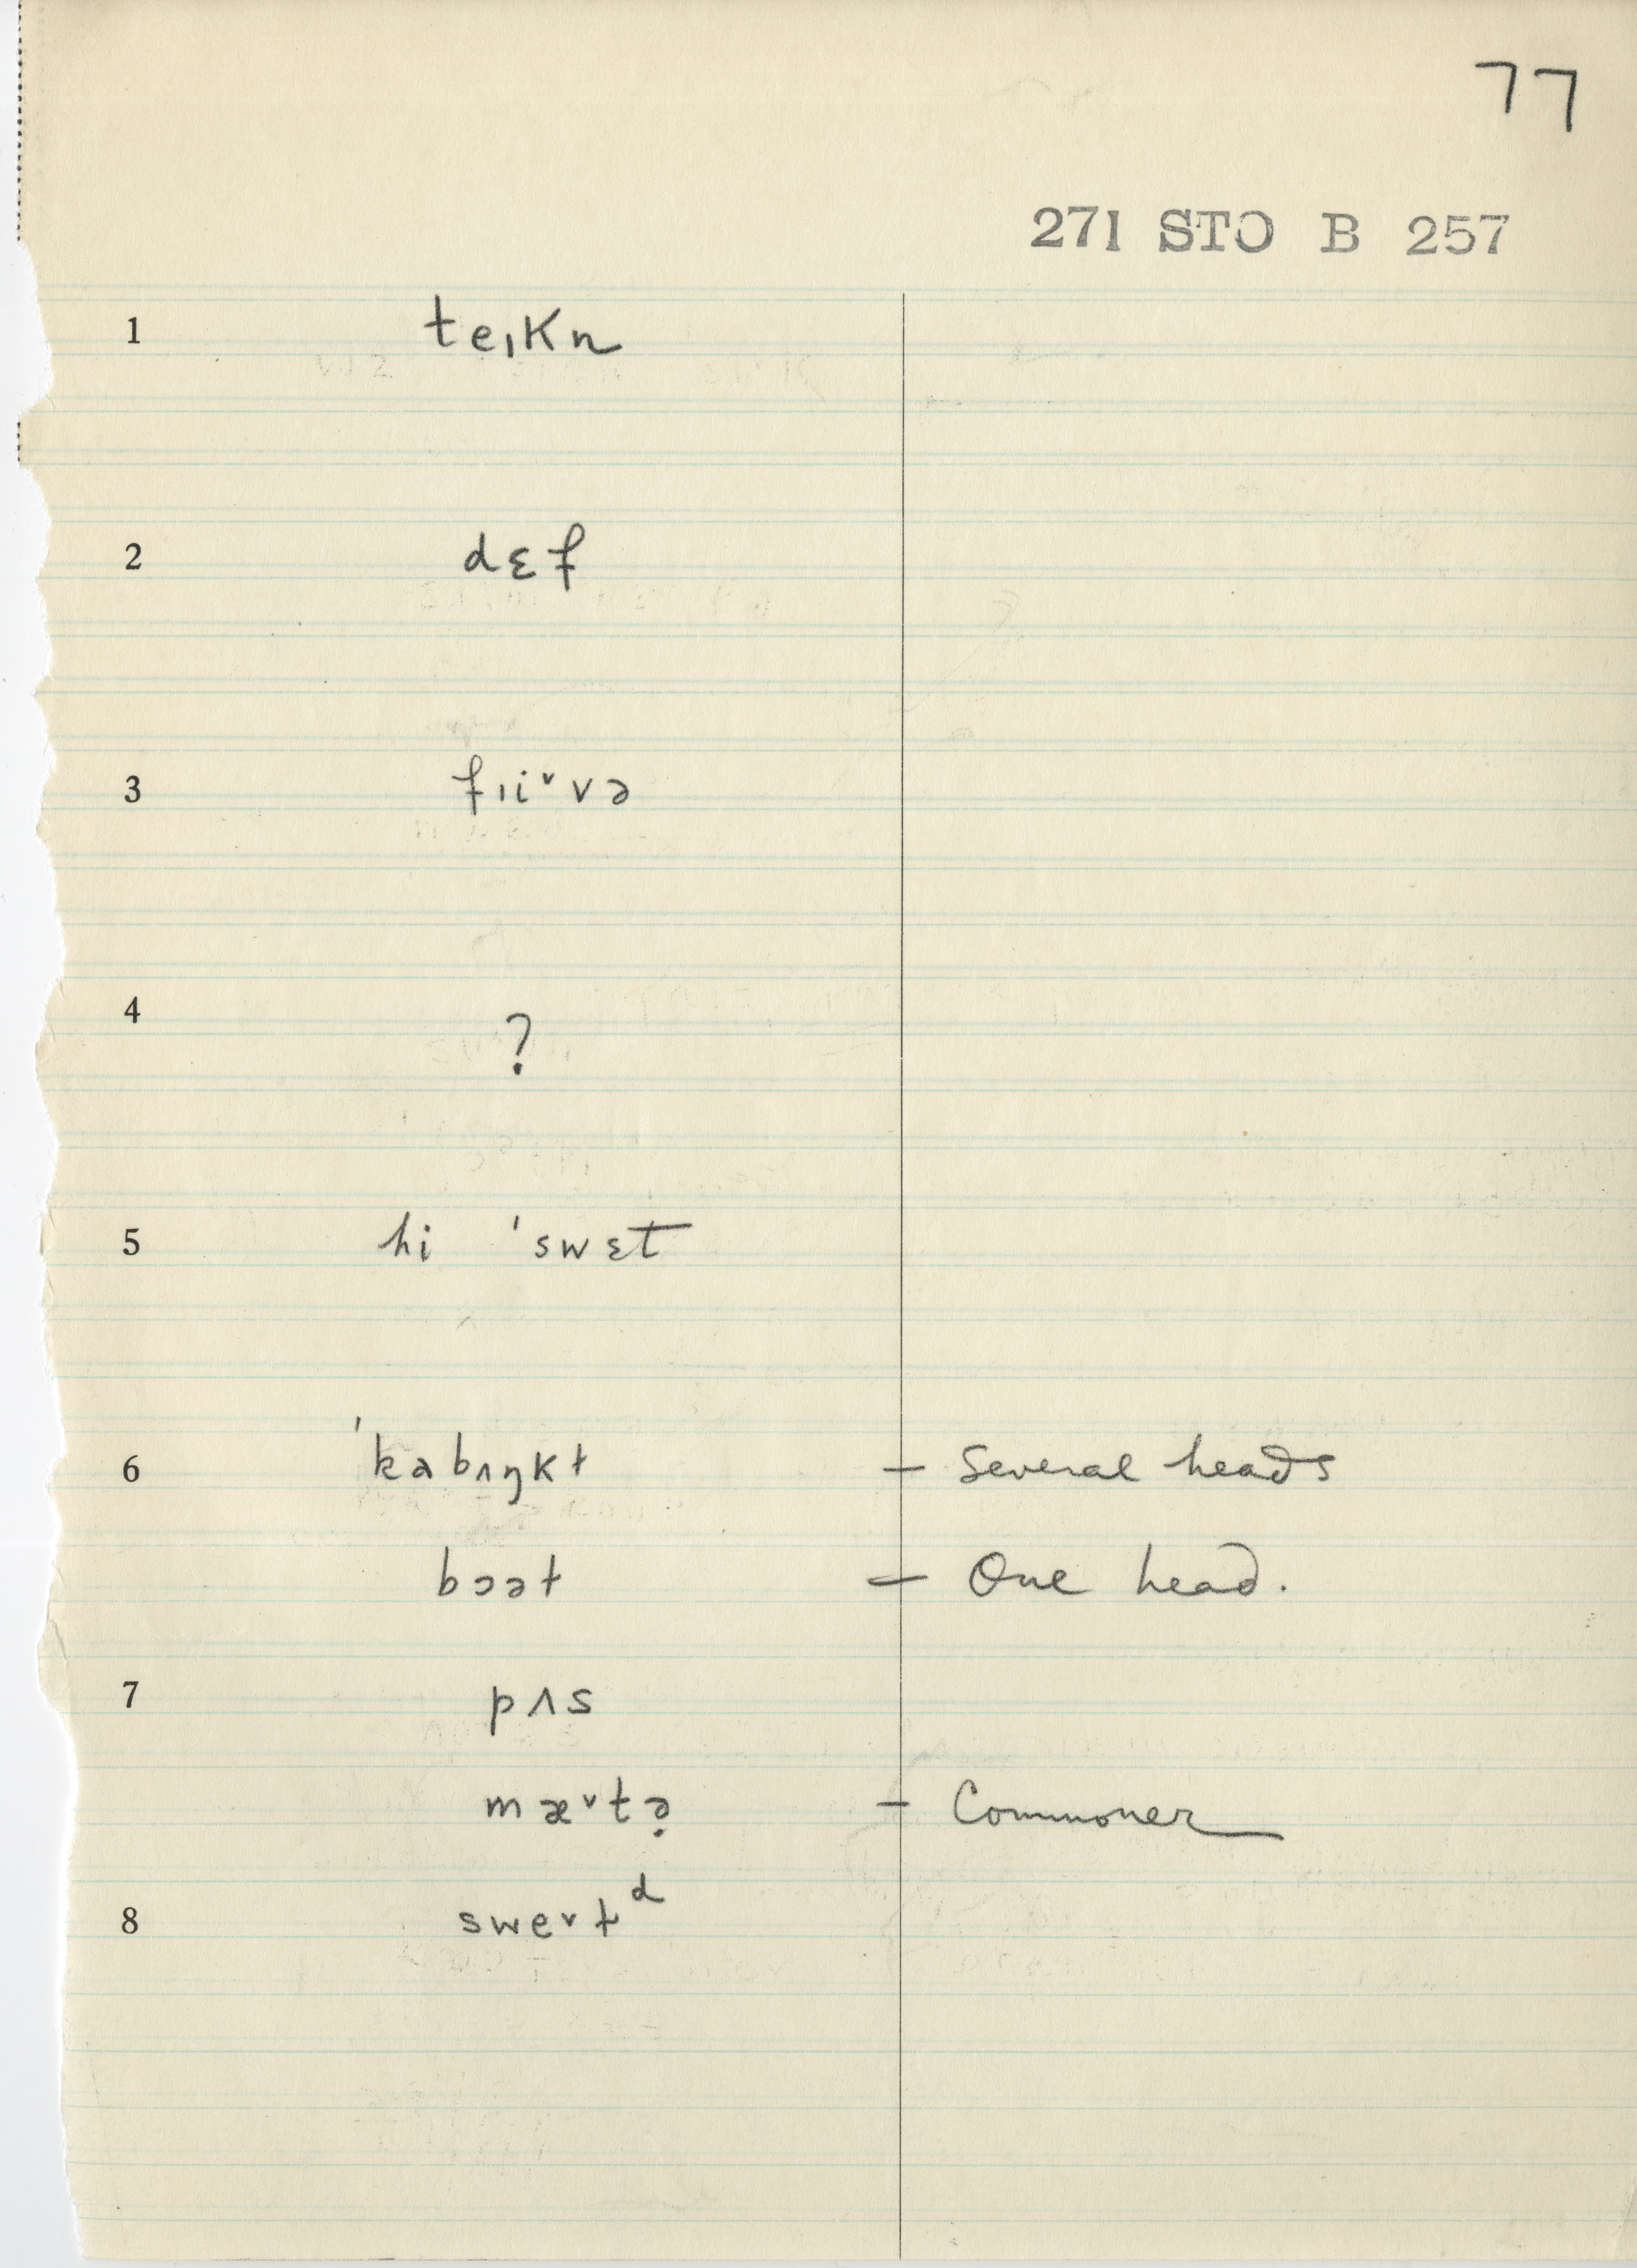 77
271 STO B 257
1 teɪkn
2 dɛf
3 fɪiᵛvə
4 ?
5 hi 'swɛt
6 'kabɪŋkt – Several heads
bɔət – One head.
7 pʌs
mæᵛtə̣ – Commoner
8 sweᵛtᵈ